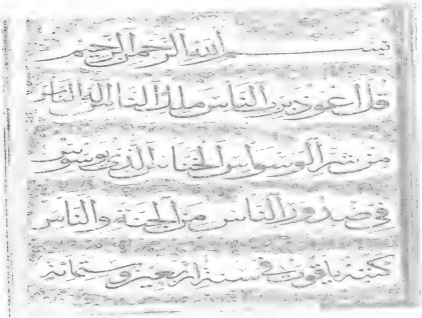 بسم الله الرحمن الرحيم
قل اعوذ برب الناس ملك الناس اله الناس
من شر الوسواس الخناس الذي يوسوس
في صدور الناس من الجنة والناس
كتبه ياقوت في سنة اربعين وستمائة